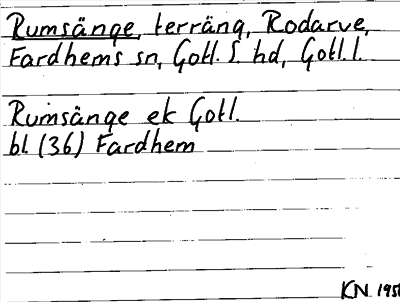 Rumsänge, terräng, Rodarve,
Fardhems sn, Gotl. S. hd, Gotl. l.
Rumsänge ek Gotl.
bl (36) Fardhem
KN 195